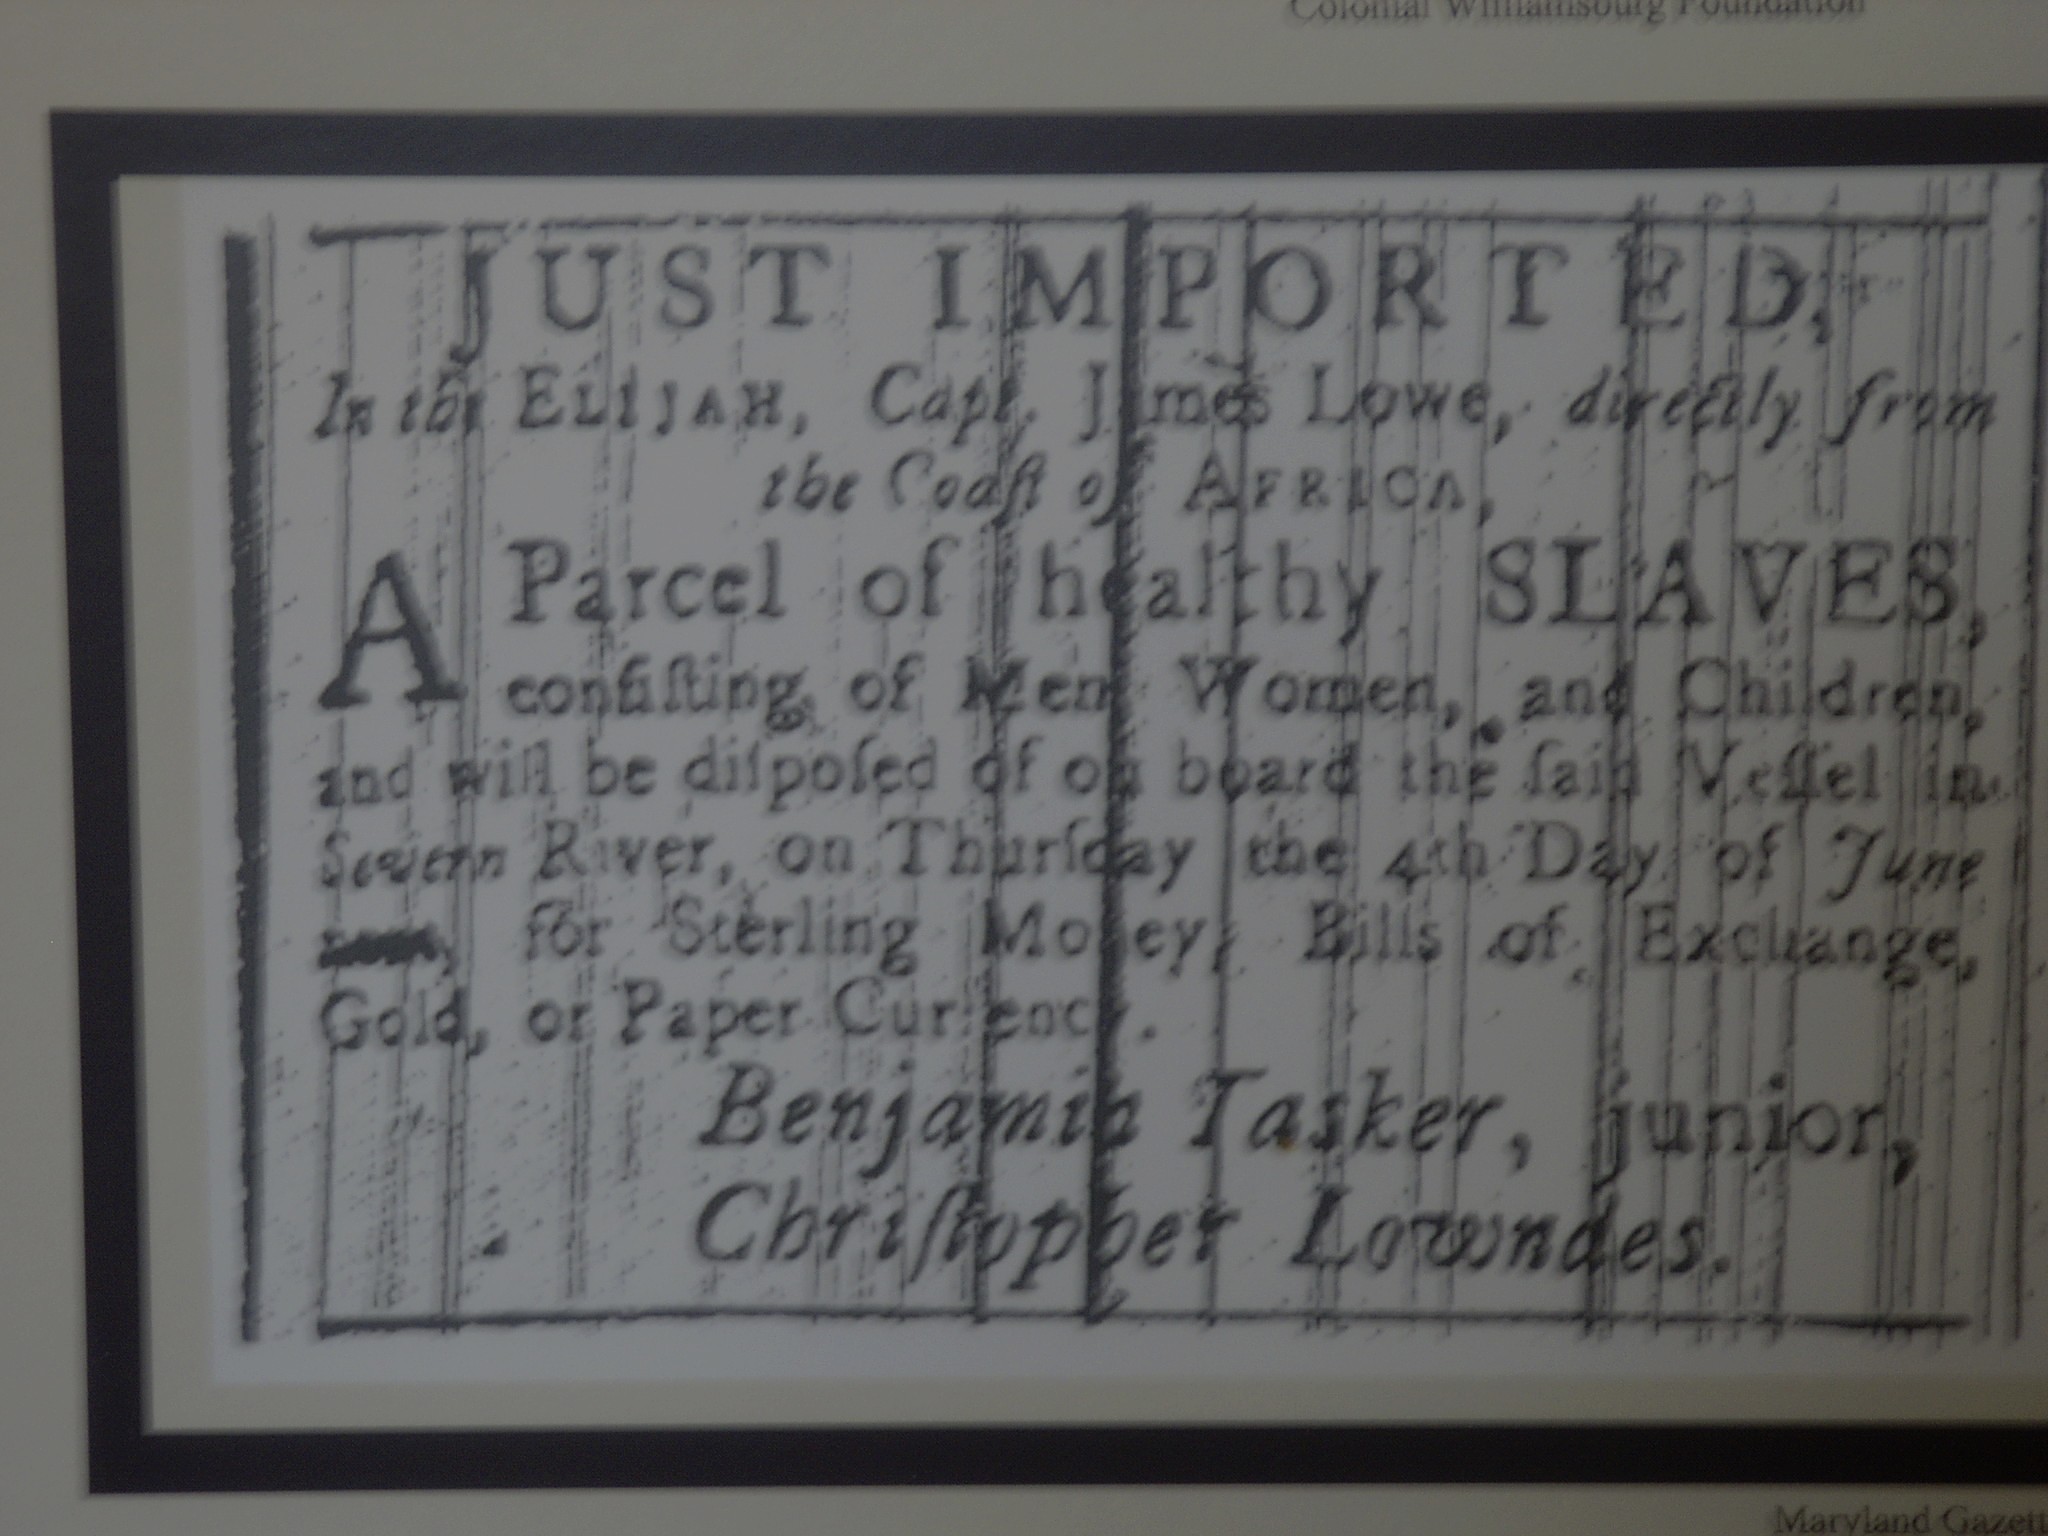 Colonial Williamsburg Foundation
JUST IMPORTED,
In the ELIJAH, Capt. James Lowe, directly from
the Coaſt of AFRICA,
A Parcel of healthy SLAVES,
conſiſting of Men Women, and Children,
and will be diſpoſed of on board the ſaid Veſſel in
Severn River, on Thurſday the 4th Day of June
for Sterling Money, Bills of Exchange,
Gold, or Paper Currency.
Benjamin Tasker, junior,
Chriſtopher Lowndes.
Maryland Gazett